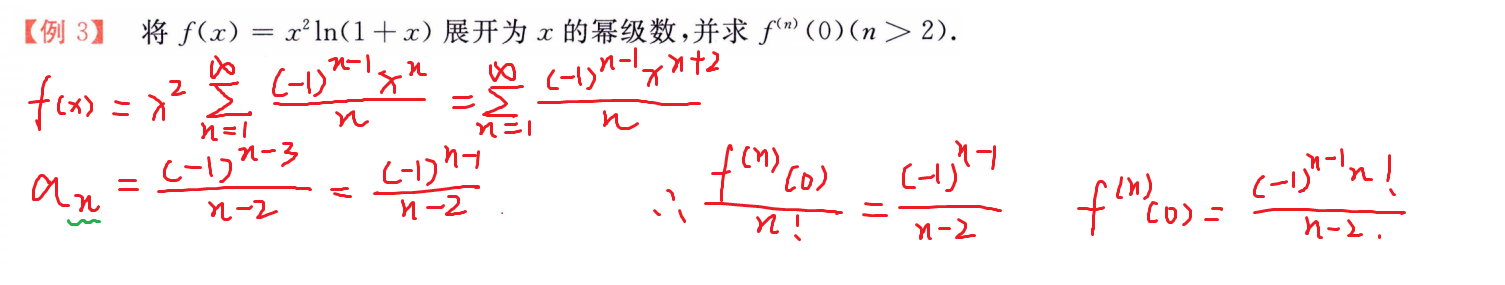 【例 3】 将 f(x) = x²ln(1+x) 展开为 x 的幂级数,并求 f⁽ⁿ⁾(0)(n > 2).
f(x) = x² ∑_{n=1}^{∞} \frac{(-1)^{n-1}x^{n}}{n} = ∑_{n=1}^{∞} \frac{(-1)^{n-1}x^{n+2}}{n}
a_n = \frac{(-1)^{n-3}}{n-2} = \frac{(-1)^{n-1}}{n-2} . ∴ \frac{f^{(n)}(0)}{n!} = \frac{(-1)^{n-1}}{n-2} f^{(n)}(0) = \frac{(-1)^{n-1}n!}{n-2.}